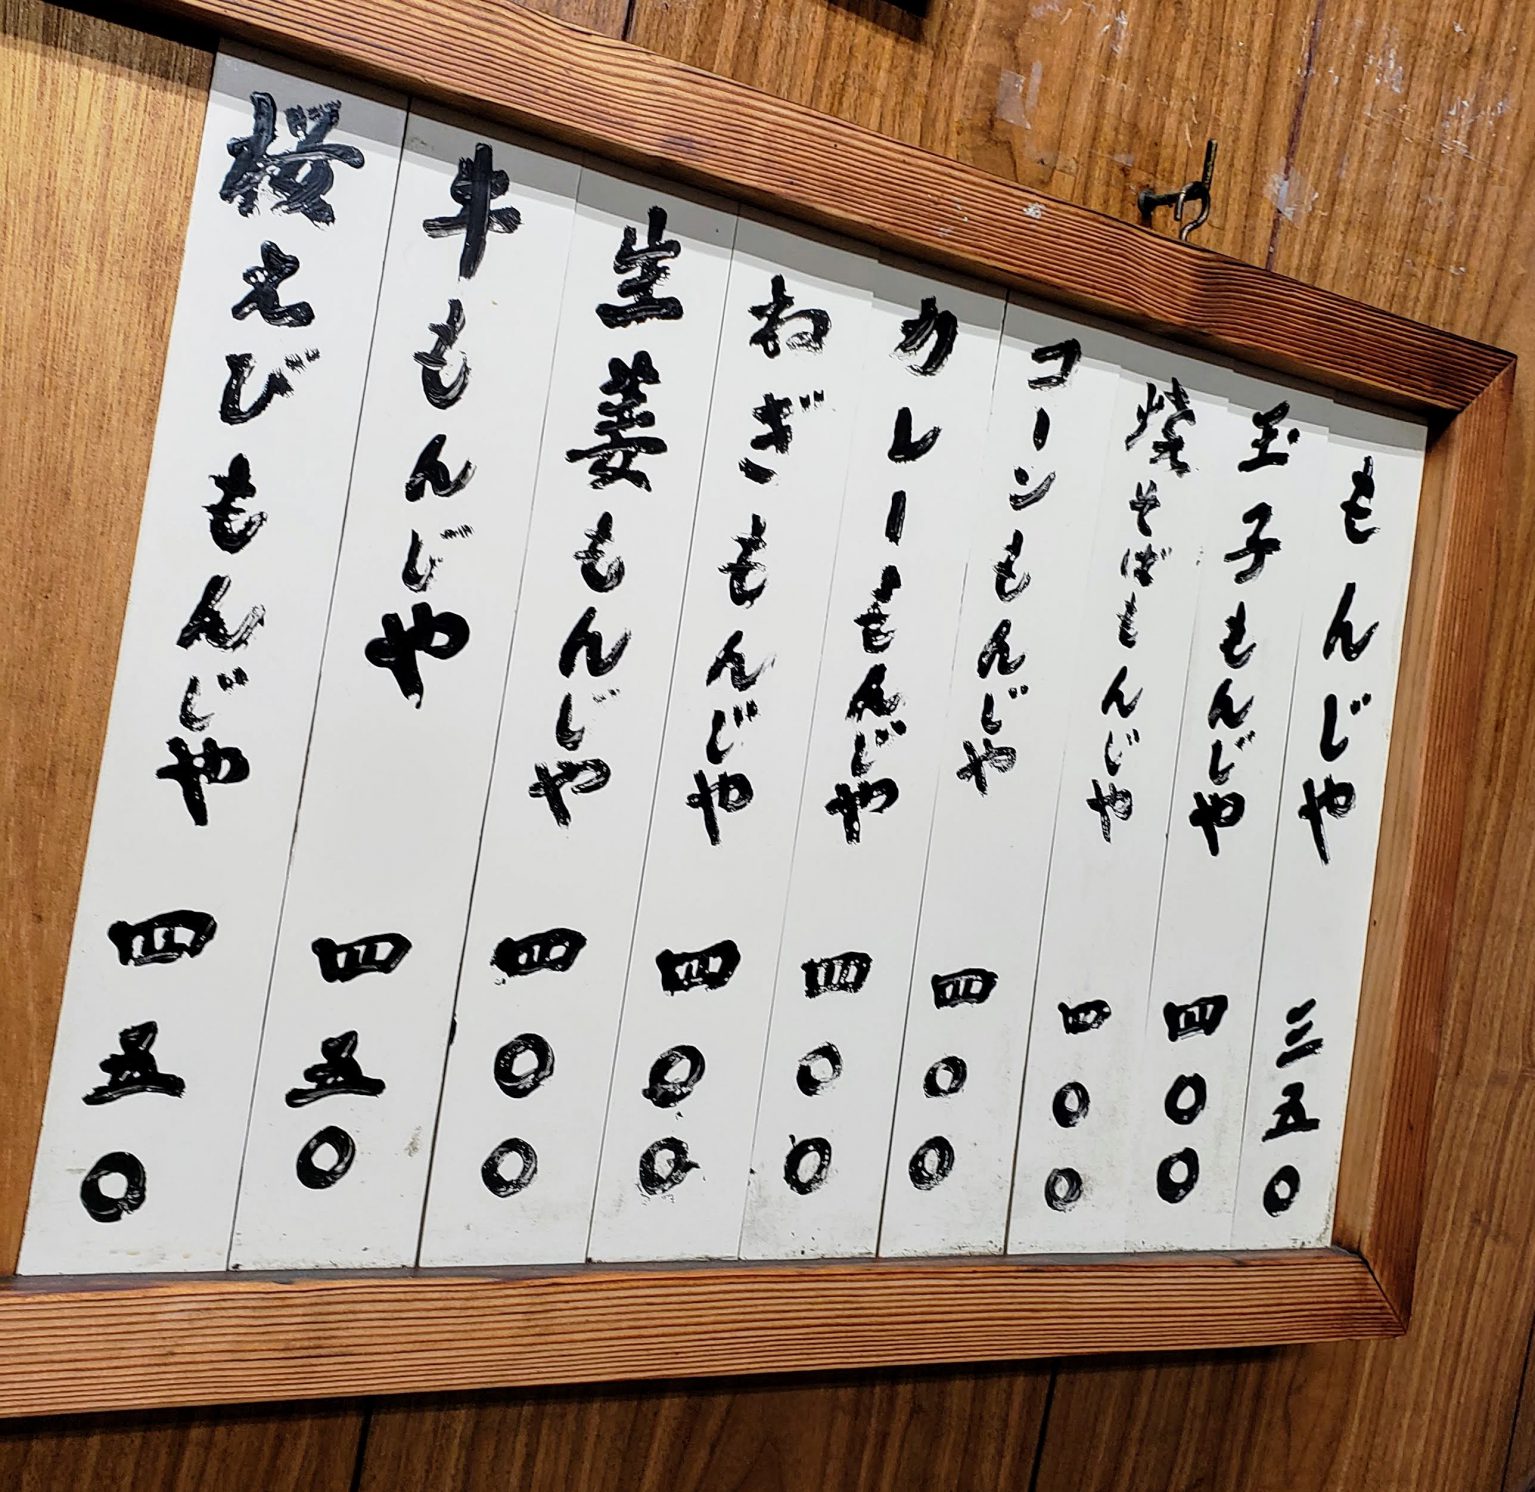 もんじや 三五〇
玉子もんじや 四〇〇
焼そばもんじや 四〇〇
コーンもんじや 四〇〇
カレーもんじや 四〇〇
ねぎもんじや 四〇〇
生姜もんじや 四〇〇
牛もんじや 四五〇
桜えびもんじや 四五〇